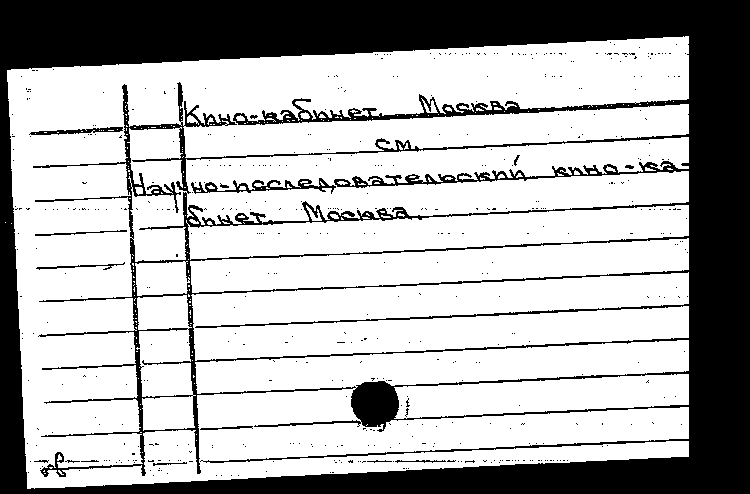 Кино-кабинет. Москва
см.
Научно-последовательский кино-ка-
бинет. Москва.